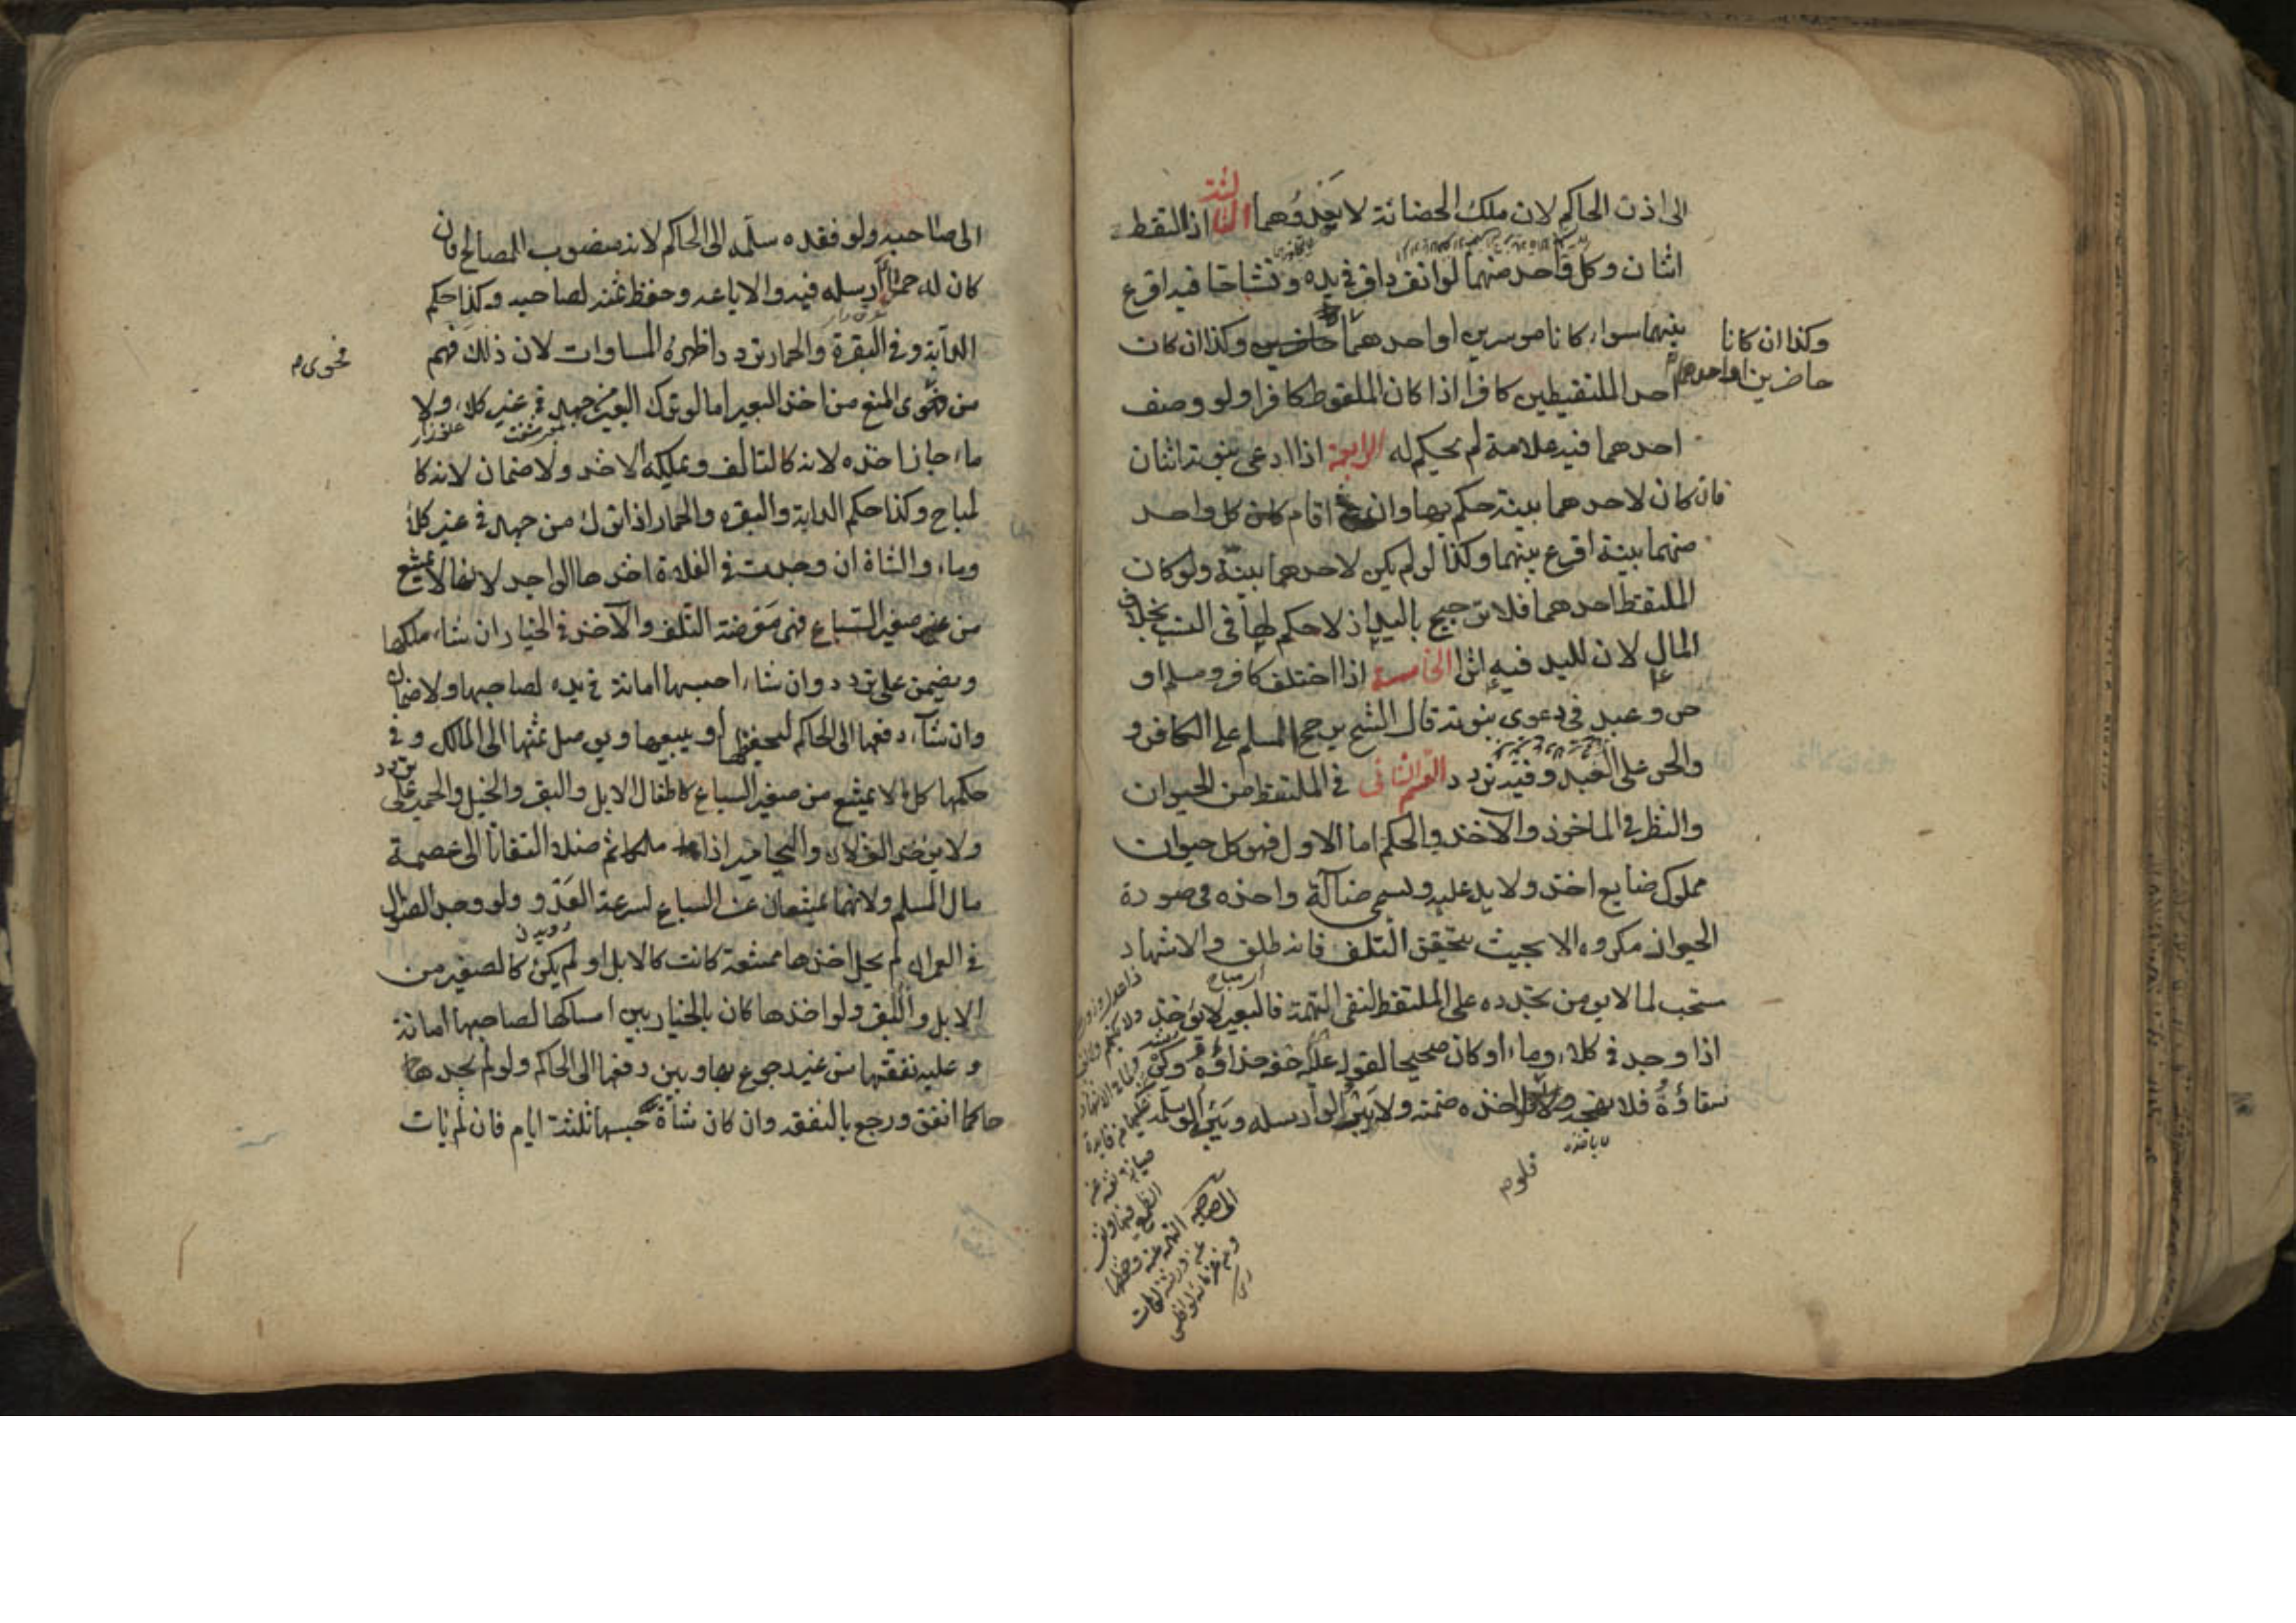 الى اذن الحاكم لان ملك الحضانة لا يعدوهما الثالثة اذا التقط
اثنان وكل واحد منهما لو انفرد اقر في يده وتشاحا فيه اقرع
بينهما سواء كانا موسرين او احدهما حاضرين وكذا ان كان
وكذا ان كانا
حاضرين او احدهما
احد الملتقطين كافرا اذا كان الملقوط كافرا ولو وصف
احدهما فيه علامة لم يحكم له الرابعة اذا ادعى بنوته اثنان
فان كان لاحدهما بينة حكم بها وان اقام كل واحد
منهما بينة اقرع بينهما وكذا لو لم يكن لاحدهما بينة ولو كان
الملتقط احدهما فلا ترجيح باليد اذ لا حكم لها في النسب بخلاف
المال لان لليد فيه اثرا الخامسة اذا اختلف كافر ومسلم او
حر وعبد في دعوى بنوته قال الشيخ يرجح المسلم على الكافر و
والحر على العبد وفيه تردد القسم الثاني في الملتقط من الحيوان
والنظر في الماخوذ والآخذ والحكم اما الاول فهو كل حيوان
مملوك ضايع اخذ ولا يد عليه ويسمى ضالة واخذه في صورة
الحيوان مكروه الا بحيث يتحقق التلف فانه طلق والاشهاد
مستحب لما لا يومن تجدده على الملتقط لنفى التهمة فالبعير لا يوخذ
اذا وجد في كلاء وماء او كان صحيحا لقوله خفه حذاؤه وكرشه
سقاؤه فلا تهجه فلو اخذه ضمنه ولا يبرأ لو ارسله ويبرأ لو سلمه
فلو م
الى صاحبه
الى صاحبه ولو فقده سلمه الى الحاكم لانه منصوب للمصالح فان
كان له حمى ارسله فيه والا باعه وحفظ ثمنه لصاحبه وكذا حكم
الدابة وفي البقرة والحمار تردد اظهره المساوات لان ذلك فهم
فحوى م
من فحوى المنع من اخذ البعير اما لو ترك البعير من جهد في غير كلاء ولا
ماء جاز اخذه لانه كالتالف ويملكه الاخذ ولا ضمان لانه كا
لمباح وكذا حكم الدابة والبقره والحمار اذا ترك من جهد في غير كلاء
وماء والشاة ان وجدت في الفلاة اخذها الواجد لانها لا تمتنع
من صغير السباع فهي معرضة التلف والآخذ في الخيار ان شاء ملكها
ويضمن على تردد وان شاء احبسها امانة في يده لصاحبها ولا ضمان
وان شاء دفعها الى الحاكم ليحفظها او يبيعها ويوصل ثمنها الى المالك وفي
حكمها كل ما لا يمتنع من صغير السباع كاطفال الابل والبقر والخيل والحمير على تردد
ولا يوخذ الغزلان واليحامير اذا ملكا ثم ضلا التفاتا الى عصمة
مال المسلم ولانهما يمتنعان عن السباع لسرعة العدو ولو وجد الضوال
في العمران لم يحل اخذها ممتنعة كانت كالابل او لم يكن كالصغير من
الابل والبقر ولو اخذها كان بالخيار بين امساكها لصاحبها امانة
وعليه نفقتها من غير رجوع بها وبين دفعها الى الحاكم ولو لم يجد
حاكما انفق ورجع بالنفقه وان كان شاة حبسها ثلثة ايام فان لم يات